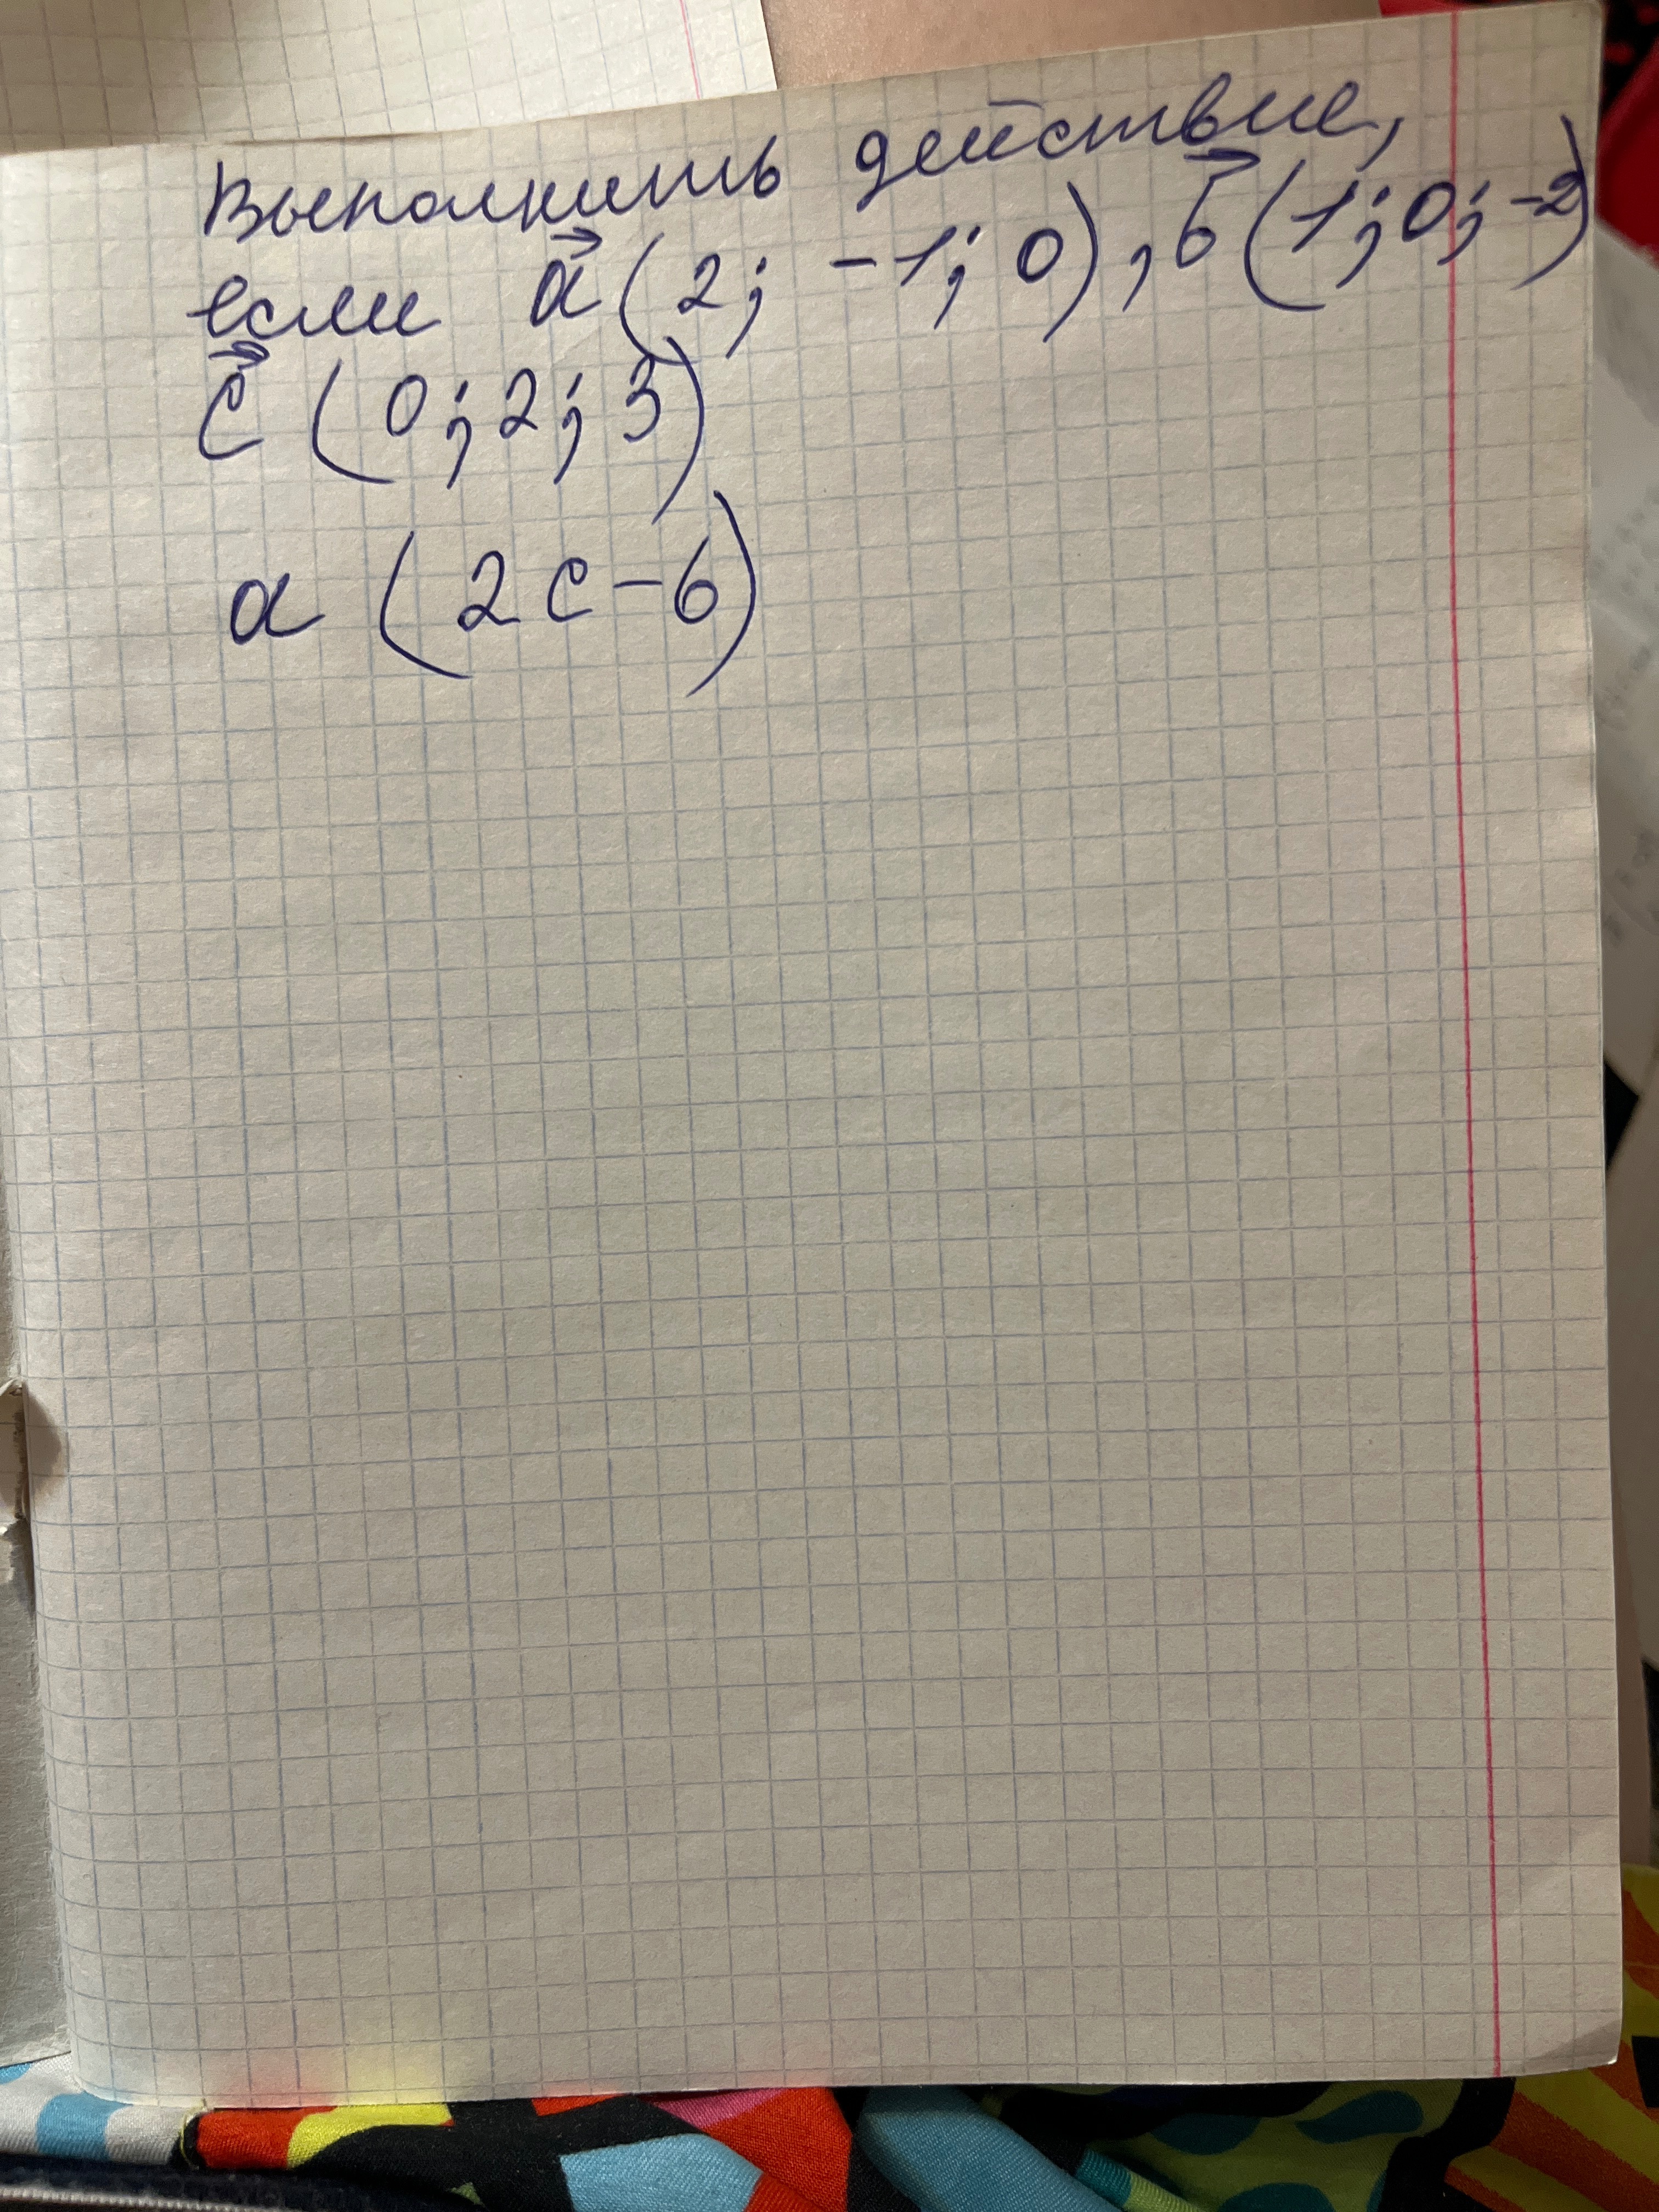 Выполнить действие,
если a⃗ (2; -1; 0), b⃗ (1; 0; -2)
c⃗ (0; 2; 3)
a (2c-b)